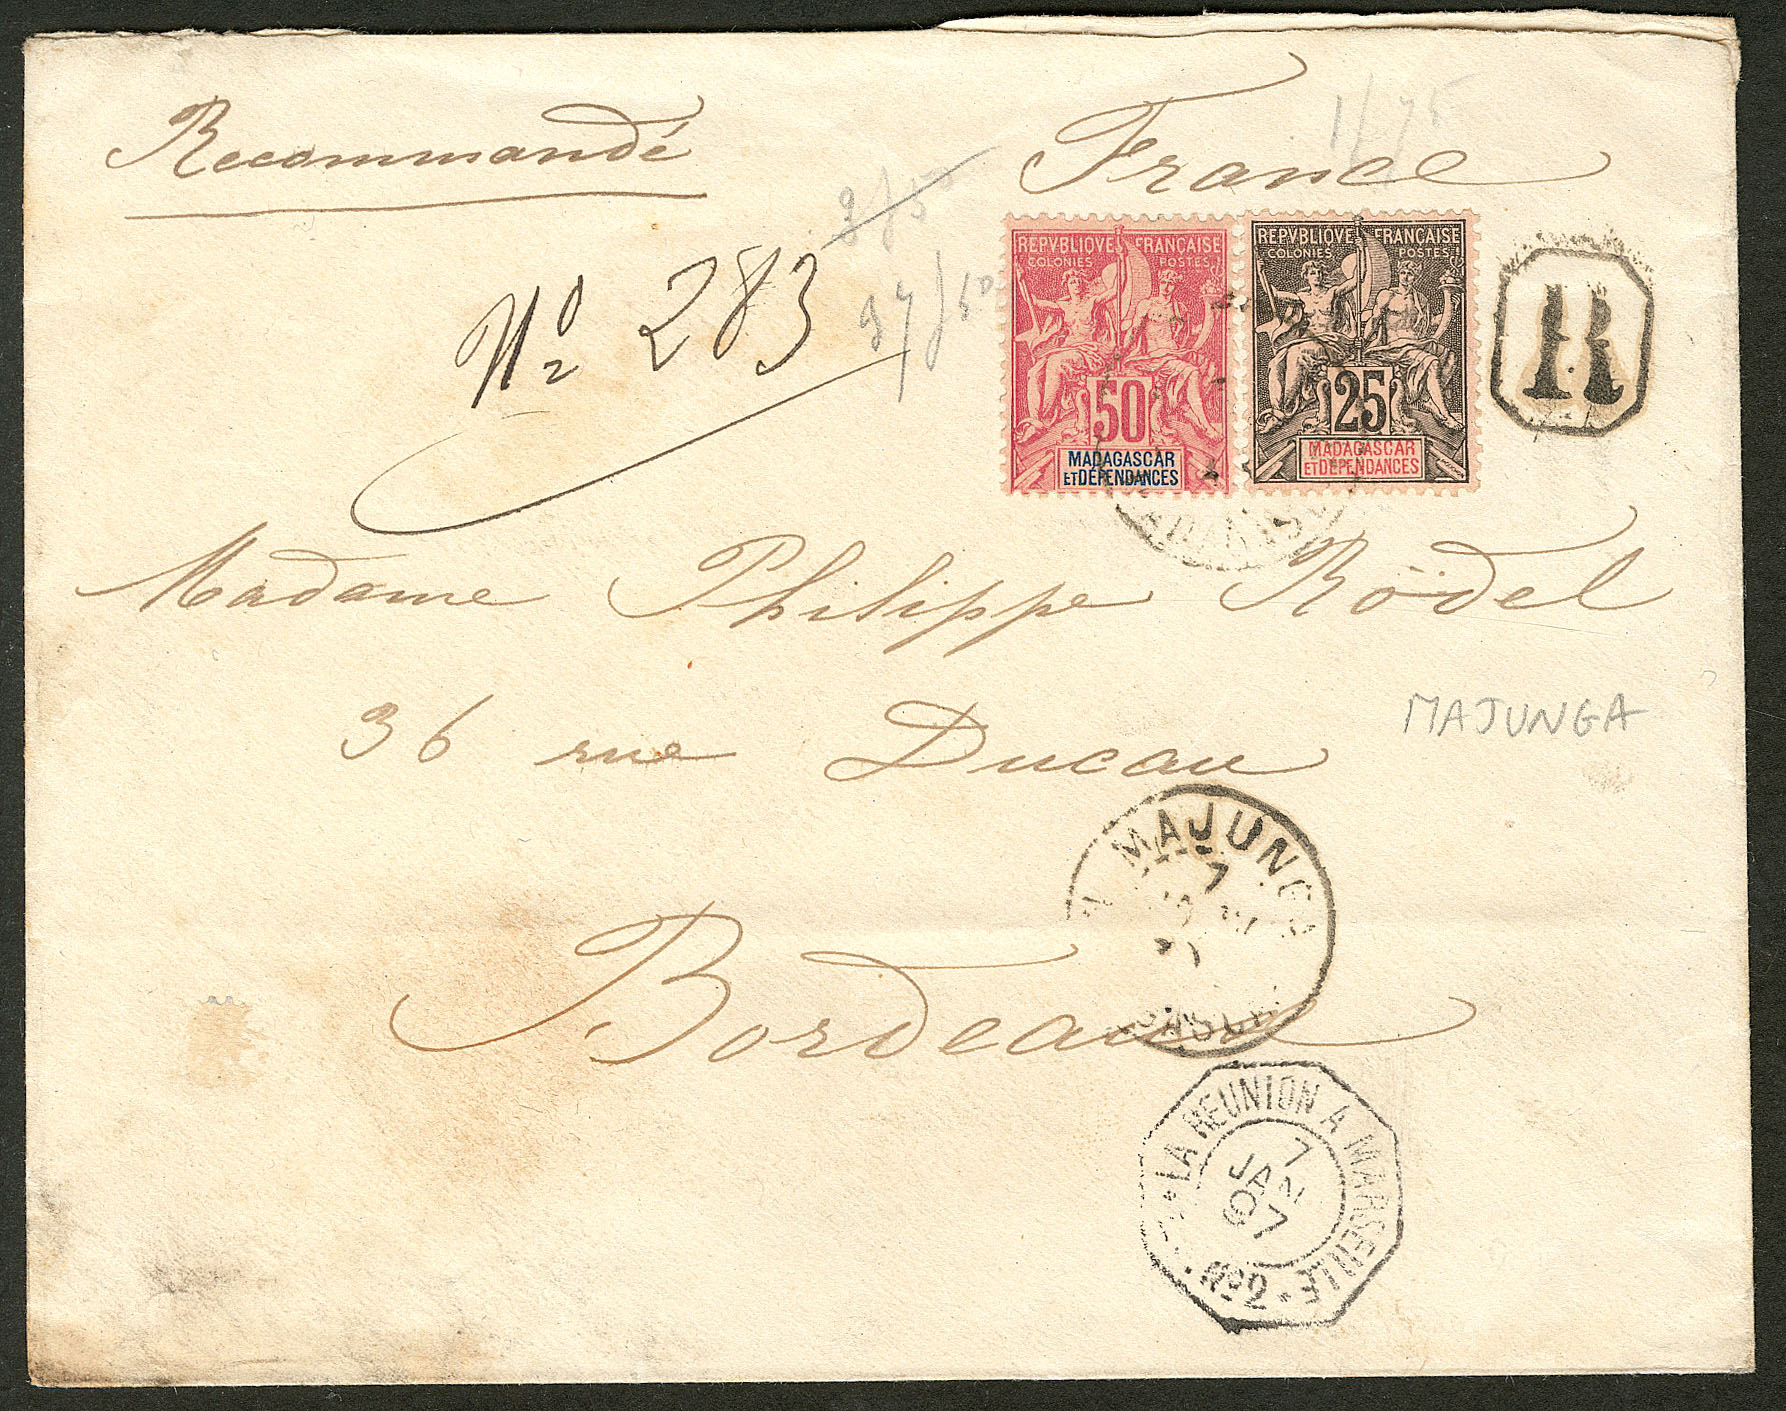 Recommandé
France
1/75
Nº 283
97/50
REPVBLIQVE FRANÇAISE
COLONIES POSTES
50
MADAGASCAR
ET DÉPENDANCES
REPVBLIQVE FRANÇAISE
COLONIES POSTES
25
MADAGASCAR
ET DÉPENDANCES
R
Madame Philippe Rödel
36 rue Ducau
MAJUNGA
MAJUNGA
7
Bordeaux
LA REUNION A MARSEILLE
7
JAN
07
Nº2